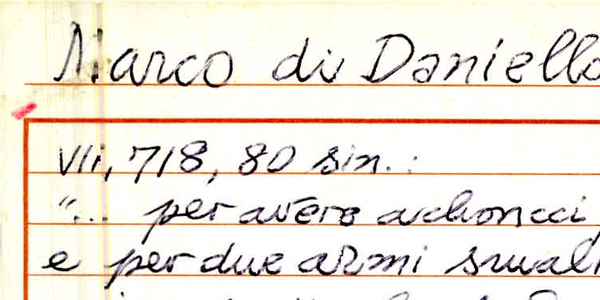 Marco di Daniello
VII, 718, 80 sin.:
"... per avere achonci
e per due armi smal